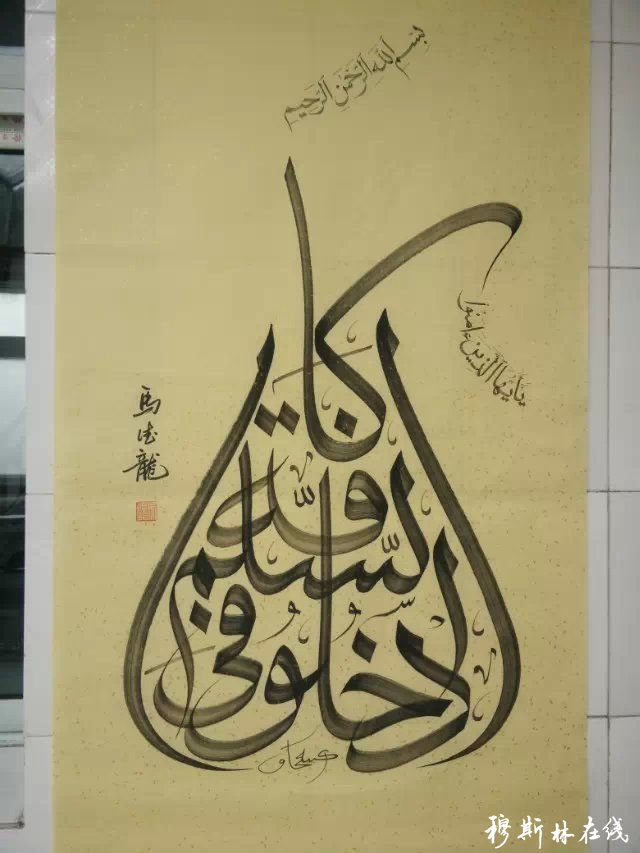 بسم الله الرحمن الرحيم
يٰأيها الذين ءامنوا
ادخلوا في السلم كافة
馬德龍
穆斯林在线